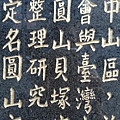 中山區，
會與臺灣
圓山貝塚
整理研究
定名圓山